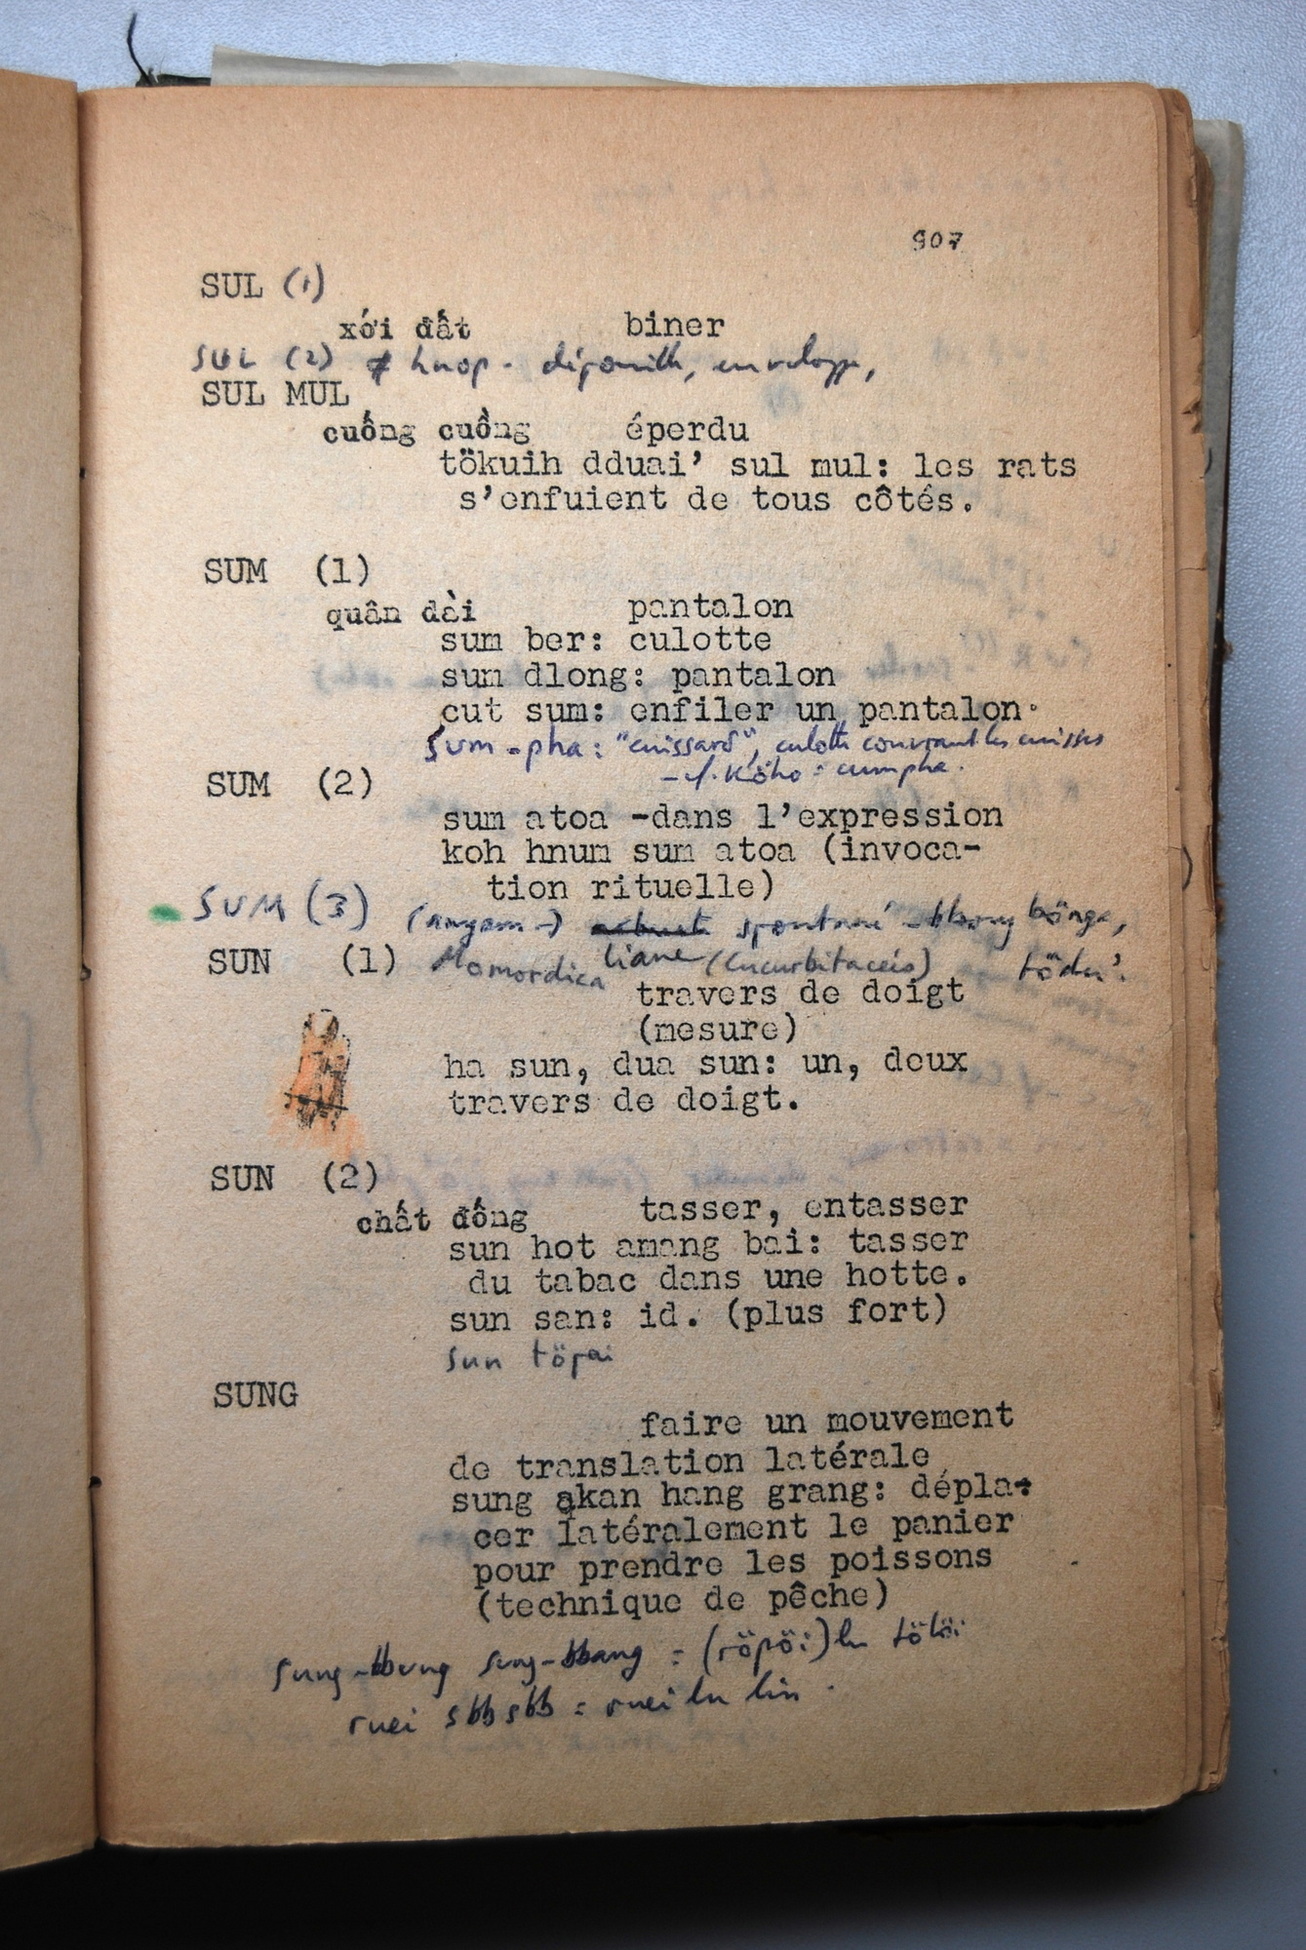 907
SUL (1)
xới đất biner
SUL (2) ≠ hnop -
SUL MUL
cuống cuồng éperdu
tökuih dduai’ sul mul: les rats
s’enfuient de tous côtés.
SUM (1)
quân dài pantalon
sum ber: culotte
sum dlong: pantalon
cut sum: enfiler un pantalon.
Sum-pha: "cuissard", culotte couvrant les cuisses
- cf. Köho: cumpha.
SUM (2)
sum atoa -dans l’expression
koh hnum sum atoa (invoca-
tion rituelle)
SUM (3) (anyam -) spontané
liane
SUN (1) Momordica (Cucurbitaceés) tödu’.
travers de doigt
(mesure)
ha sun, dua sun: un, deux
travers de doigt.
SUN (2)
chất đống tasser, entasser
sun hot amang bai: tasser
du tabac dans une hotte.
sun san: id. (plus fort)
sun töpai
SUNG
faire un mouvement
de translation latérale
sung akan hang grang: dépla-
cer latéralement le panier
pour prendre les poissons
(technique de pêche)
sung-bbung sung-bbang = (röpöi) lu tölöi
ruei sbb sbb = ruei lu lin.